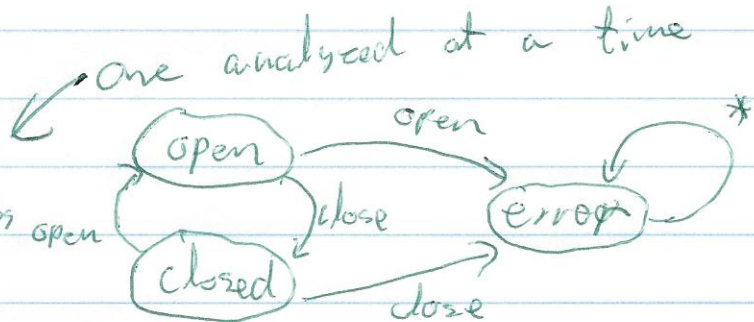 One analyzed at a time
open
open
*
error
open
close
closed
close